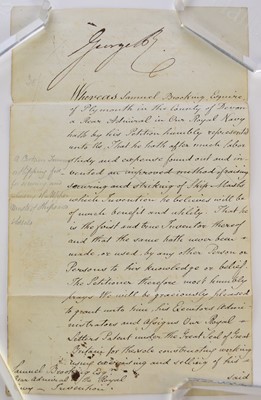 George R.
Whereas Samuel Brooking Esquire
of Plymouth in the County of Devon
a Rear Admiral in Our Royal Navy
hath by his Petition humbly represented
unto Us, That he hath after much labor
study and expense found out and in-
vented an improved method of
securing and striking of Ship-Masts
which Invention he believes will be
of much benefit and utility That he
is the first and true Inventor thereof
and that the same hath never been
made or used by any other Person or
Persons to his knowledge or belief.
The Petitioner therefore most humbly
prays We will be graciously pleased
to grant unto him, his Executors Admi-
nistrators and Assigns Our Royal
Letters Patent under the Great Seal of Great
Britain for the sole constructing working
using exercising and selling of his
said
Samuel Brooking Esqr.
Rear Admiral of the Royal
Navy - Invention